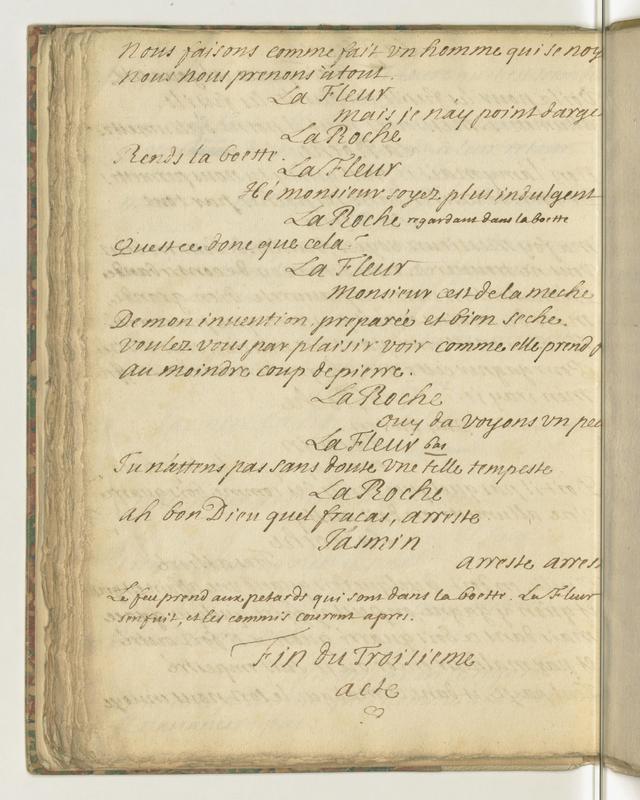 Nous faisons comme fait vn homme qui se noy
nous nous prenons a tout.
La Fleur
mais je n'ay point d'arge
La Roche
Rends la boette.
La Fleur
Hé monsieur soyez plus indulgent
La Roche regardant dans la boette
Quest ce donc que cela?
La Fleur
Monsieur c'est de la meche
De mon inuention, preparée et bien seche.
voulez vous par plaisir voir comme elle prend f
au moindre coup de pierre.
La Roche
Ouy da voyons vn peu
La Fleur bas
Tu n'attens pas sans doute vne telle tempeste
La Roche
ah bon Dieu quel fracas, arreste
Jasmin
arreste arres
Le feu prend aux petards qui sont dans la boette. La Fleur
s'enfuit, et les commis courent apres.
Fin du Troisieme
acte